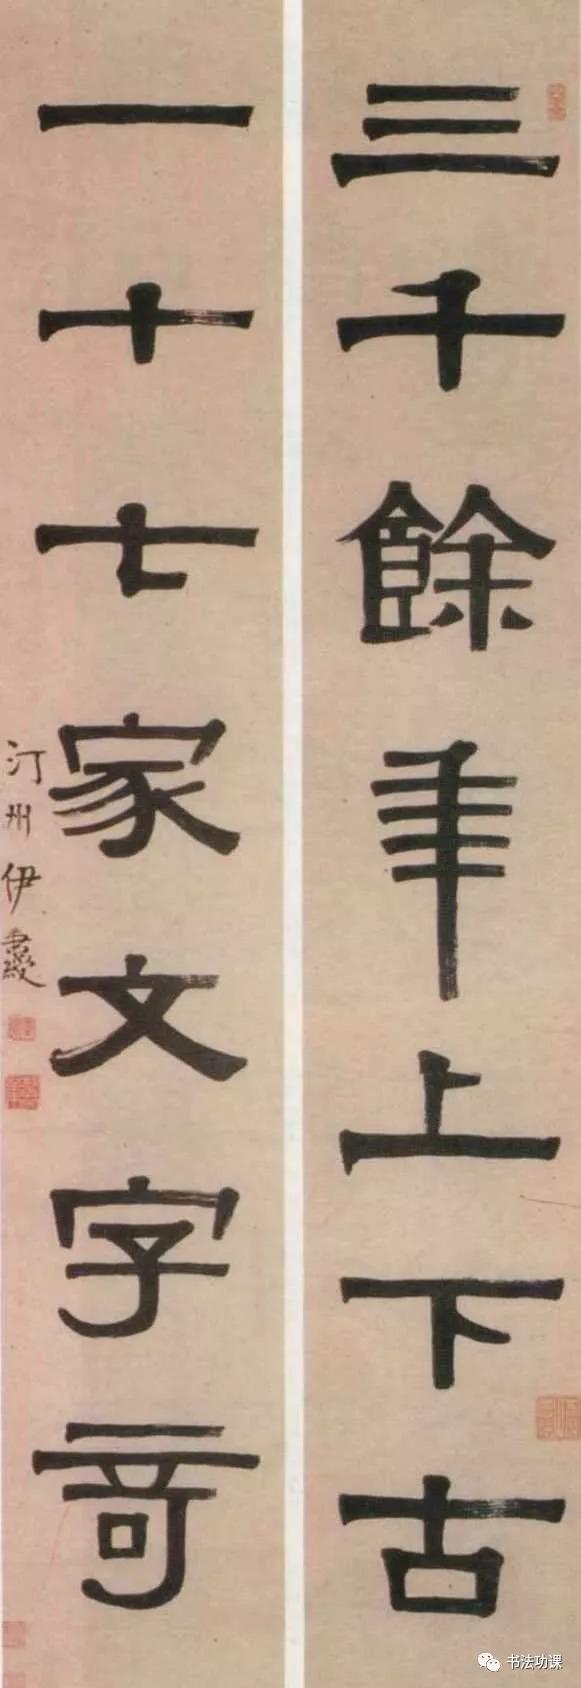 三千餘年上下古
一十七家文字奇
汀州伊秉綬
书法功课